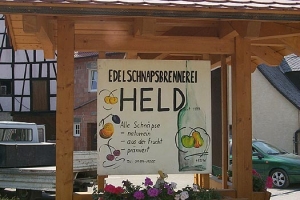 EDELSCHNAPSBRENNEREI
HELD
Alle Schnäpse
- naturrein
- aus der Frucht
prämiert